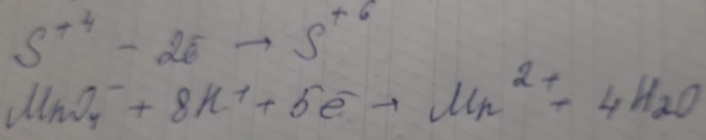 S⁺⁴ - 2ē → S⁺⁶
MnO₄⁻ + 8H⁺ + 5ē → Mn²⁺ + 4H₂O